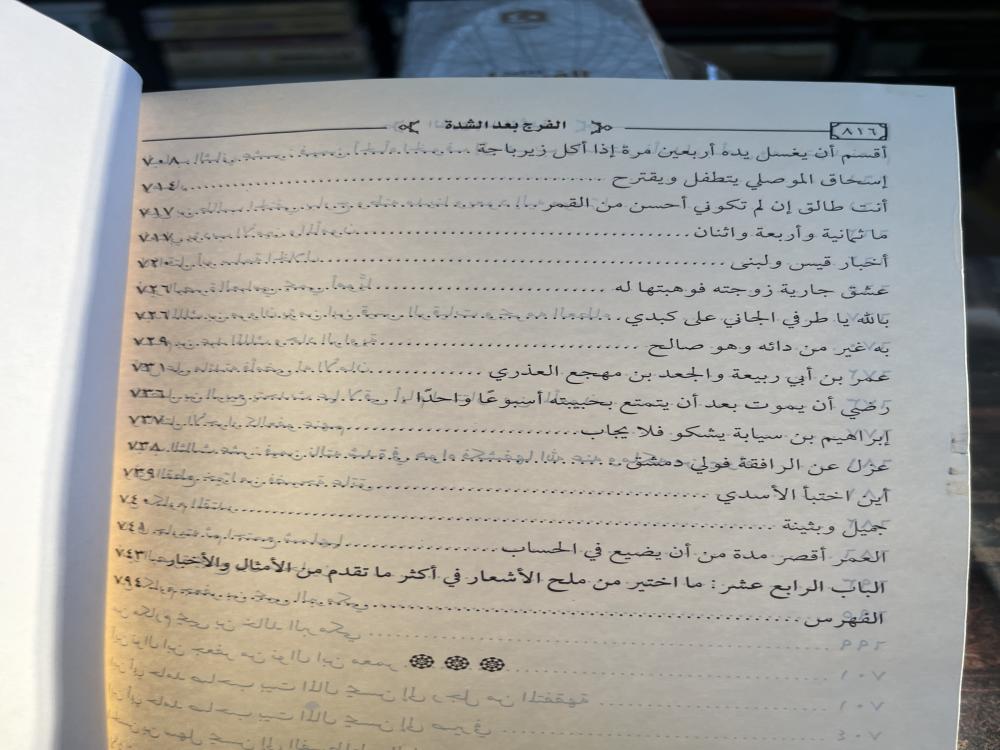 ٨١٦
الفرج بعد الشدة
أقسم أن يغسل يده أربعين مرة إذا أكل زيرباجة ٧٠٨
إسحاق الموصلي يتطفل ويقترح ٧١٤
أنت طالق إن لم تكوني أحسن من القمر ٧١٧
ما ثمانية وأربعة واثنان ٧١٧
أخبار قيس ولبنى ٧٢٠
عشق جارية زوجته فوهبتها له ٧٢٦
بالله يا طرفي الجاني على كبدي ٧٢٦
به غير من دائه وهو صالح ٧٢٩
عمر بن أبي ربيعة والجعد بن مهجع العذري ٧٣١
رضي أن يموت بعد أن يتمتع بحبيبته أسبوعًا واحدًا ٧٣٦
إبراهيم بن سيابة يشكو فلا يجاب ٧٣٧
عزل عن الرافقة فولي دمشق ٧٣٨
أين اختبأ الأسدي ٧٣٩
جميل وبثينة ٧٤٠
العمر أقصر مدة من أن يضيع في الحساب ٧٤١
الباب الرابع عشر: ما اختير من ملح الأشعار في أكثر ما تقدم من الأمثال والأخبار ٧٤٣
الفهرس ٧٩٤